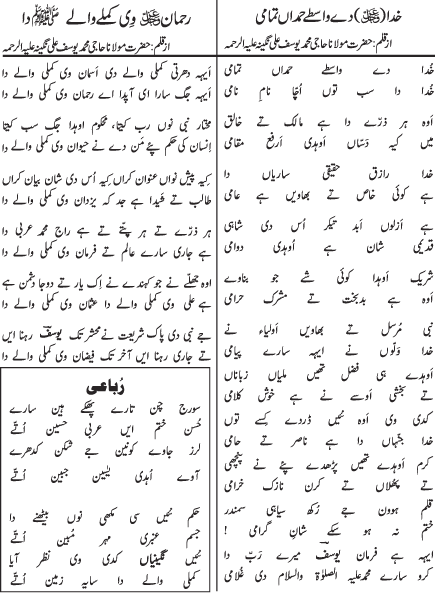 خدا (ﷻ) دے واسطے حمداں تمامی
از قلم: حضرت مولانا حاجی محمد یوسف علی نگینہ علیہ الرحمہ
خُدا دے واسطے حمداں تمامی
خُدا دا سب توں اُچا نامِ نامی
اوہ ہر ذرّے دا ہے مالک تے خالق
میں کیہ دسّاں اوہدی ارفع مقامی
خدا رازق حقیقی ساریاں دا
ہے کوئی خاص تے بھاویں ہے عامی
ہے ازلوں ابد تیکر اُس دی شاہی
قدیمی شان ہے اُوہدی دوامی
شریک اوہدا کوئی شے جو بناوے
اوہ ہے بدبخت تے مشرک حرامی
نبی مُرسل تے بھاویں اولیاء نے
خدا ولّوں نے ایہہ سارے پیامی
اوہدے ہی فضل تھیں ملیاں زباناں
تے بخشی اوسے نے ہے خوش کلامی
کدی وی اوہ نئیں ڈردے کسے توں
خدا جنہاں دا ہے ناصر تے حامی
کرم اوہدے تھیں پڑھدے پئے نے پنچھی
تے پھلاں تے کرن نازک خرامی
قلم ہوون جے رُکھ سیاہی سمندر
ختم نہ ہو سکے شانِ گرامی !
ایہہ ہے فرمان یُوسفؔ میرے رَبّ دا
کرو سارے محمد علیہ الصلوٰۃ والسلام دی غُلامی
رحمان ﷻ وِی کملے والے ﷺ دا
از قلم: حضرت مولانا حاجی محمد یوسف علی نگینہ علیہ الرحمہ
ایہہ دھرتی کملی والے دی اسمان وی کملی والے دا
ایہہ جگ سارا ای آپدا اے رحمان وی کملی والے دا
مختار نبی نوں رب کیتا، محکوم اوہدا جگ سب کیتا
انسان کی حکم پئے من دے نے حیوان وی کملی والے دا
کیہ پیش نواں عنوان کراں کیہ اُس دی شان بیان کراں
طالب تے شیدا ہے جد کہ یزدان وی کملی والے دا
ہر ذرّے تے ہر پتّے تے ہے راج محمد عربی دا
ہے جاری سارے عالم تے فرمان وی کملی والے دا
اوہ جھلّے نے جو کہندے نے اِک یار تے دوجا دشمن ہے
ہے علی وی کملی والے دا عثمان وی کملی والے دا
جے نبی دی پاک شریعت نے محشر تک یوسفؔ رہنا ایں
تے جاری رہنا ایں آخر تک فیضان وی کملی والے دا
رُباعی
سورج چن تارے پھکے ہین سارے
حُسن ختم ایں عربی حسین اُتے
لرز جاوے کونین جے شکن کدھرے
آوے اُہدی یسین جبین اُتے
حکم نئیں سی مکھی نوں بیٹھنے دا
جسم عنبری مہر و مُبین اُتے
نئیں نگینیاںؔ کدی وی نظر آیا
کملی والے دا سایہ زمین اُتے